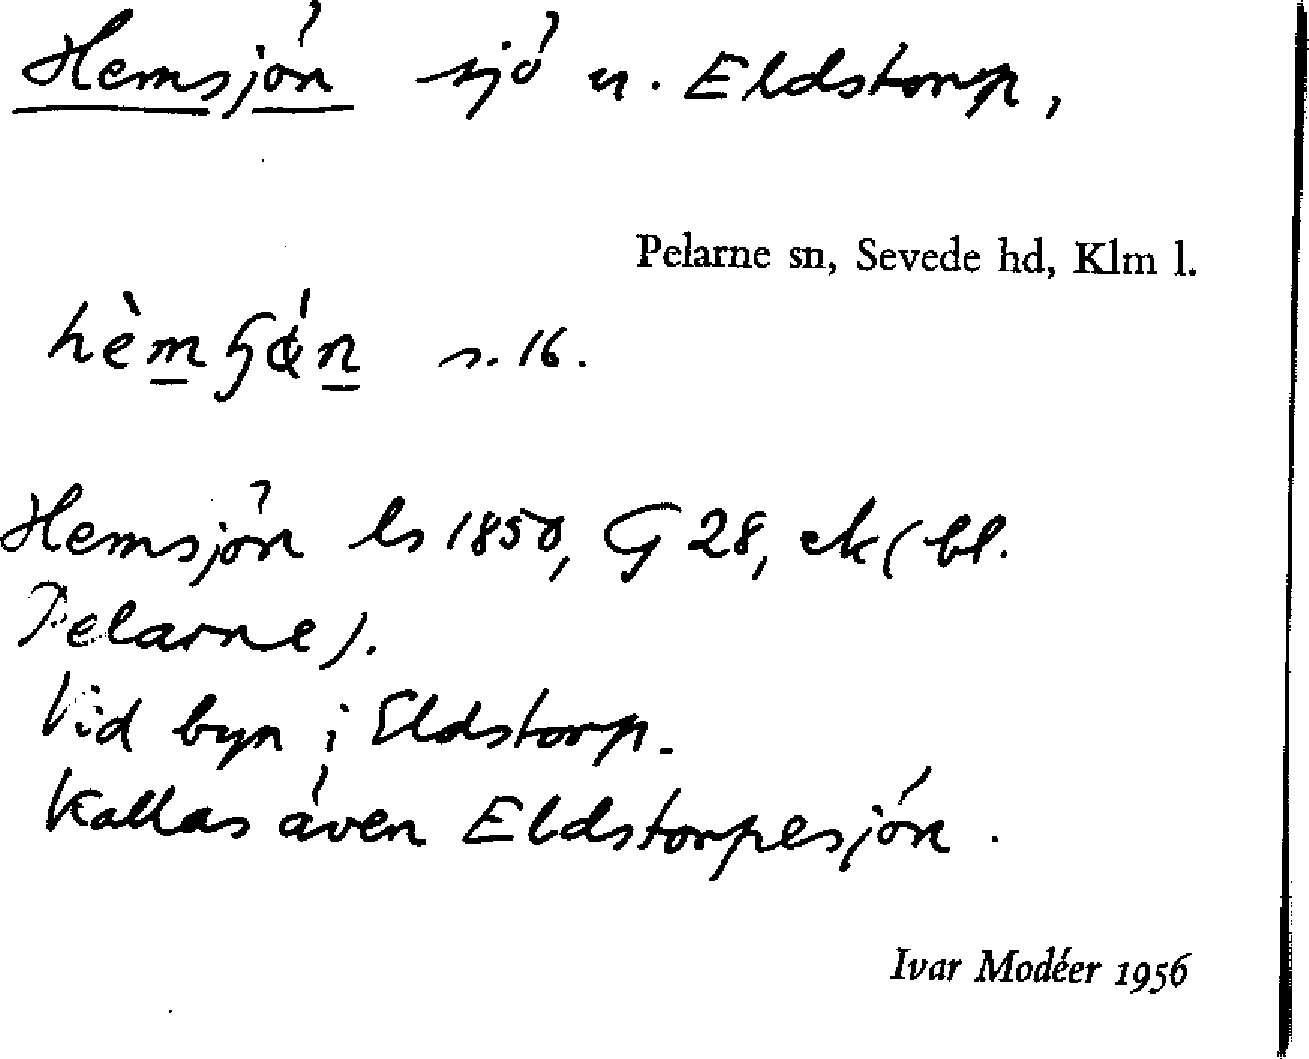 Hemsjön sjö u. Eldstorp,
Pelarne sn, Sevede hd, Klm l.
s. 16.
Hemsjön ls 1850, G 28, ek (bl.
Pelarne).
Vid byn i Eldstorp.
Kallas även Eldstorpesjön.
Ivar Modéer 1956